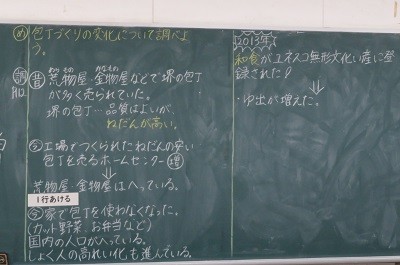 め 包丁づくりの変化について調べよ
う。
調
昔 荒物屋、金物屋などで堺の包丁
あらもの かなもの
が多く売られていた。
堺の包丁…品質はよいが、
ねだんが高い。
今 工場でつくられたねだんの安い
包丁を売るホームセンター 増
⇓
荒物屋・金物屋はへっている。
1行あける
今 家で包丁を使わなくなった。
(カット野菜、お弁当など)
国内の人口がへっている。
しょく人の高れい化も進んでいる。
2013年、
和食がユネスコ無形文化い産に登
録された!
⇓
・ゆ出が増えた。